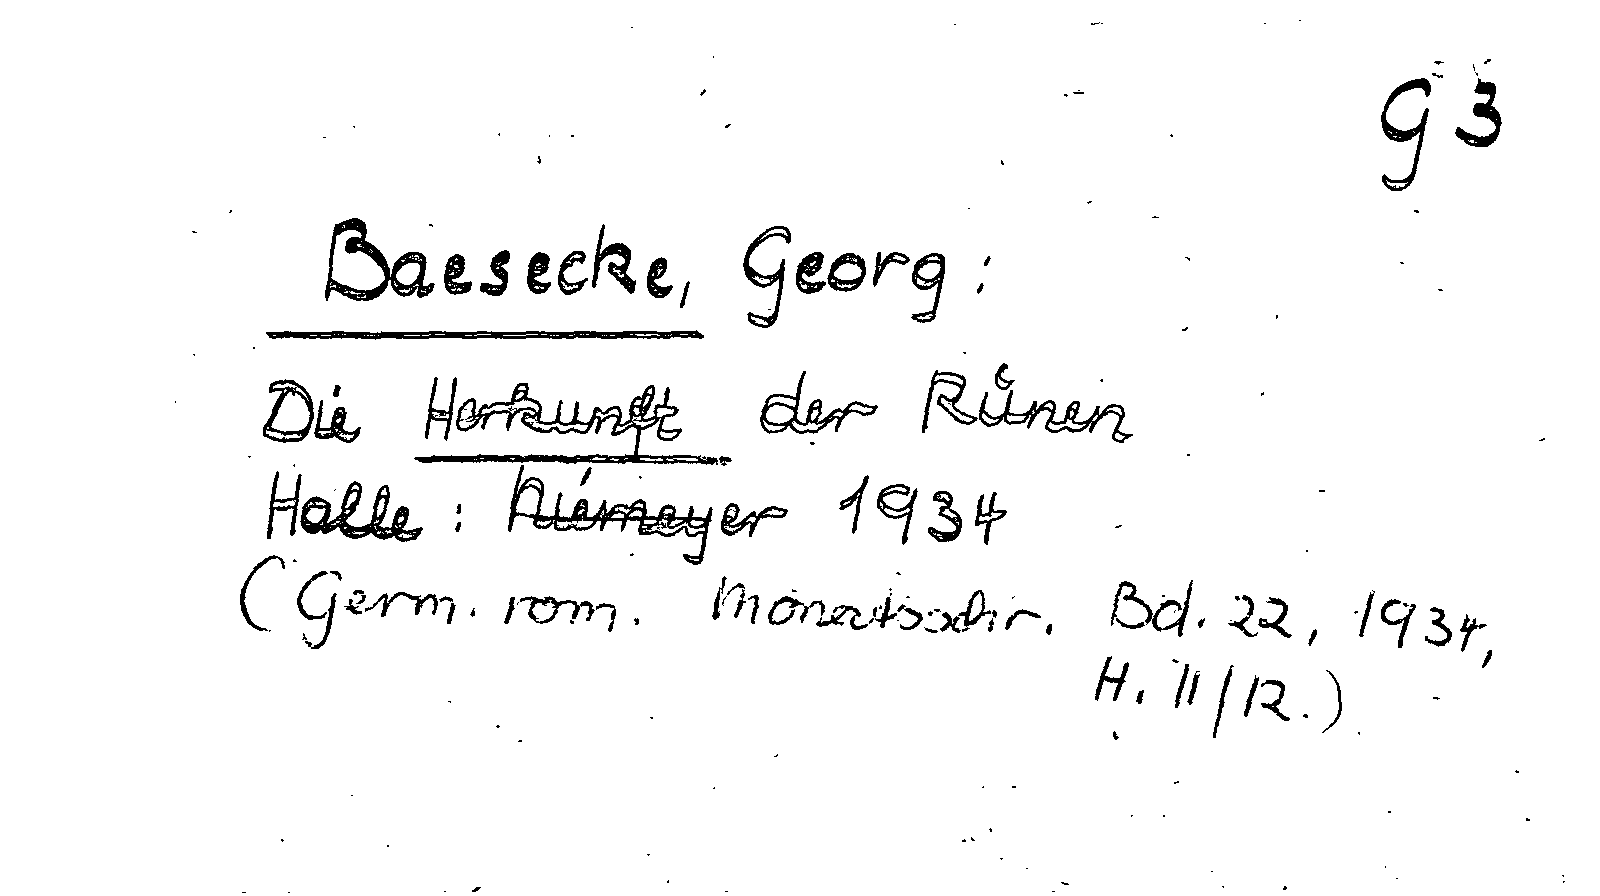 G 3
Baesecke, Georg:
Die Herkunft der Runen
Halle: Niemeyer 1934
(Germ. rom. Monatsschr. Bd. 22, 1934,
H. 11/12.)